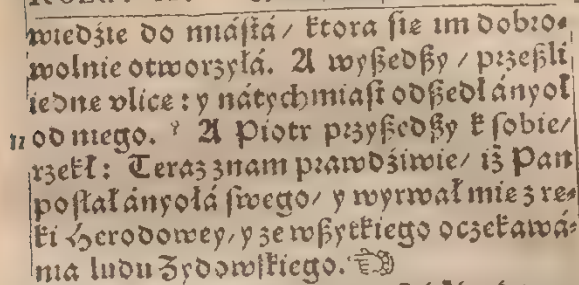 wiedźie do miáſtá / ktora ſie im dobro⸗
wolnie otworzyłá. A wyßedßy / przeßli
iedne vlice : y nátychmiaſt odßedł ányoł
11 od niego. ? A Piotr przyßedßy k ſobie /
rzekł : Teraz znam prawdźiwie / iż Pan
poſłał ányołá ſwego / y wyrwał mie z re⸗
ki Herodowey / y ze wßytkiego oczekawá⸗
nia ludu Zydowſkiego.